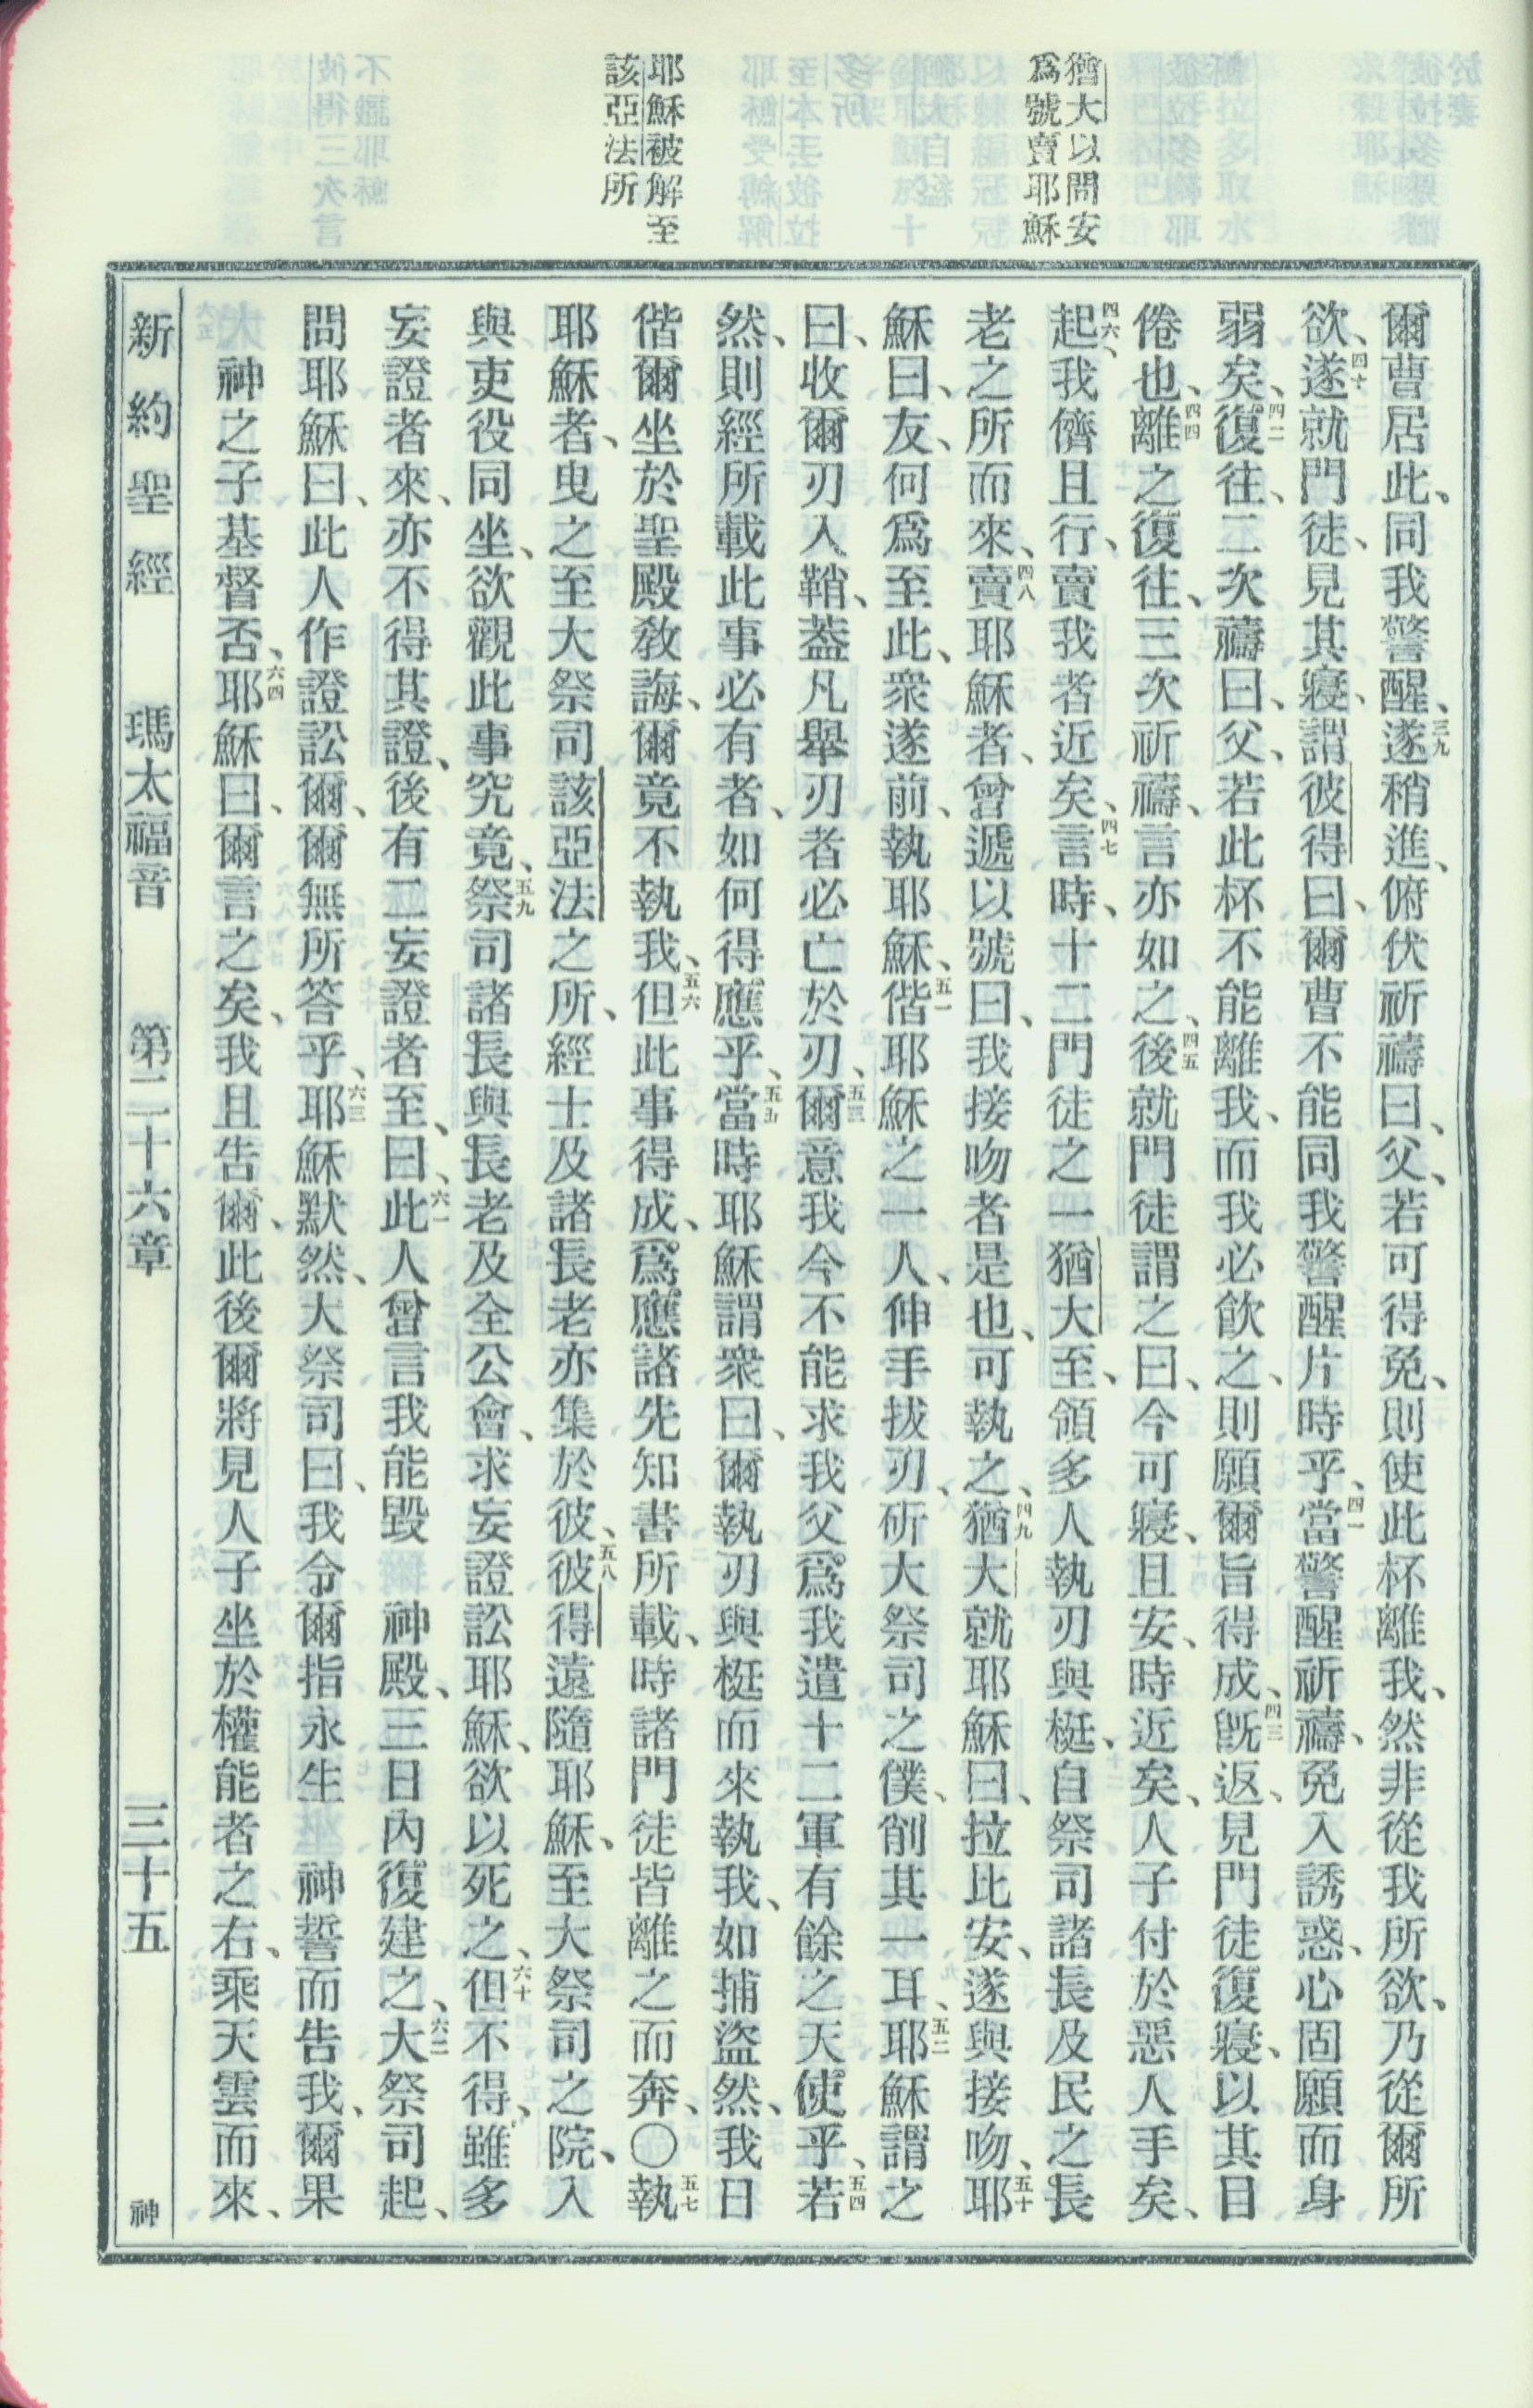 猶大以問安
爲號賣耶穌
耶穌被解至
該亞法所
爾曹居此、同我警醒、三九遂稍進、俯伏祈禱曰、父、若可得免、則使此杯離我、然非從我所欲、乃從爾所
欲、四十遂就門徒、見其寢、謂彼得曰、爾曹不能同我警醒片時乎、四一當警醒祈禱、免入誘惑、心固願而身
弱矣、四二復往、二次禱曰、父、若此杯不能離我、而我必飲之、則願爾旨得成、四三旣返、見門徒復寢、以其目
倦也、四四離之復往、三次祈禱、言亦如之、四五後就門徒謂之曰、今可寢、且安、時近矣、人子付於惡人手矣、
四六起、我儕且行、賣我者近矣、四七言時、十二門徒之一猶大至、領多人執刃與梃、自祭司諸長及民之長
老之所而來、四八賣耶穌者、曾遞以號曰、我接吻者是也、可執之、四九猶大就耶穌曰、拉比安、遂與接吻、五十耶
穌曰、友、何爲至此、衆遂前、執耶穌、五一偕耶穌之一人、伸手拔刃、斫大祭司之僕、削其一耳、五二耶穌謂之
曰、收爾刃入鞘、葢凡舉刃者必亡於刃、五三爾意我今不能求我父爲我遣十二軍有餘之天使乎、五四若
然、則經所載此事必有者、如何得應乎、五五當時耶穌謂衆曰、爾執刃與梃而來執我、如捕盜然、我日
偕爾坐於聖殿敎誨、爾竟不執我、五六但此事得成、爲應諸先知書所載、時諸門徒皆離之而奔、〇五七執
耶穌者、曳之至大祭司該亞法之所、經士及諸長老亦集於彼、五八彼得遠隨耶穌、至大祭司之院、入
與吏役同坐、欲觀此事究竟、五九祭司諸長與長老及全公會、求妄證訟耶穌、欲以死之、六十但不得、雖多
妄證者來、亦不得其證、後有二妄證者至、曰、六一此人曾言我能毀 神殿、三日內復建之、六二大祭司起、
問耶穌曰、此人作證訟爾、爾無所答乎、六三耶穌默然、大祭司曰、我令爾指永生 神誓而告我、爾果
神之子基督否、六四耶穌曰、爾言之矣、我且告爾、此後爾將見人子坐於權能者之右、乘天雲而來、
新約聖經 瑪太福音 第二十六章 三十五 神